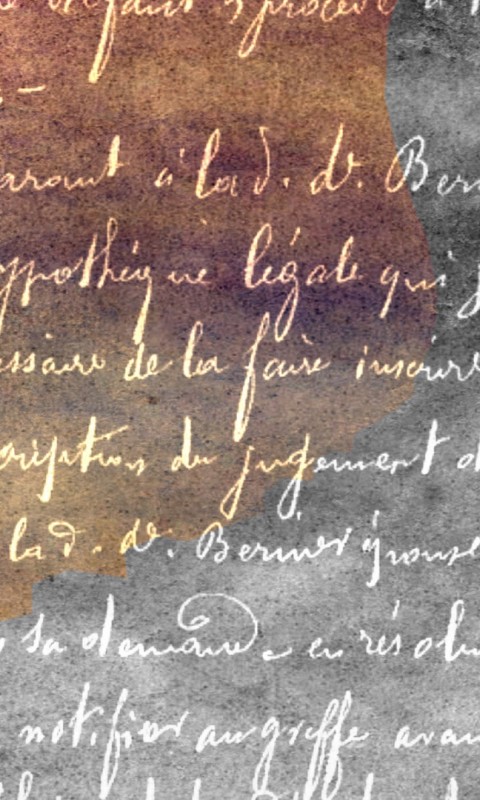 défaut procéder à
garant à lad. de. Ber
hypothéque légale qui s
essaire de la faire inscrire
cription du jugement d
lad. de. Bernier épouse
sa demande, en résolu
notifier au greffe avan